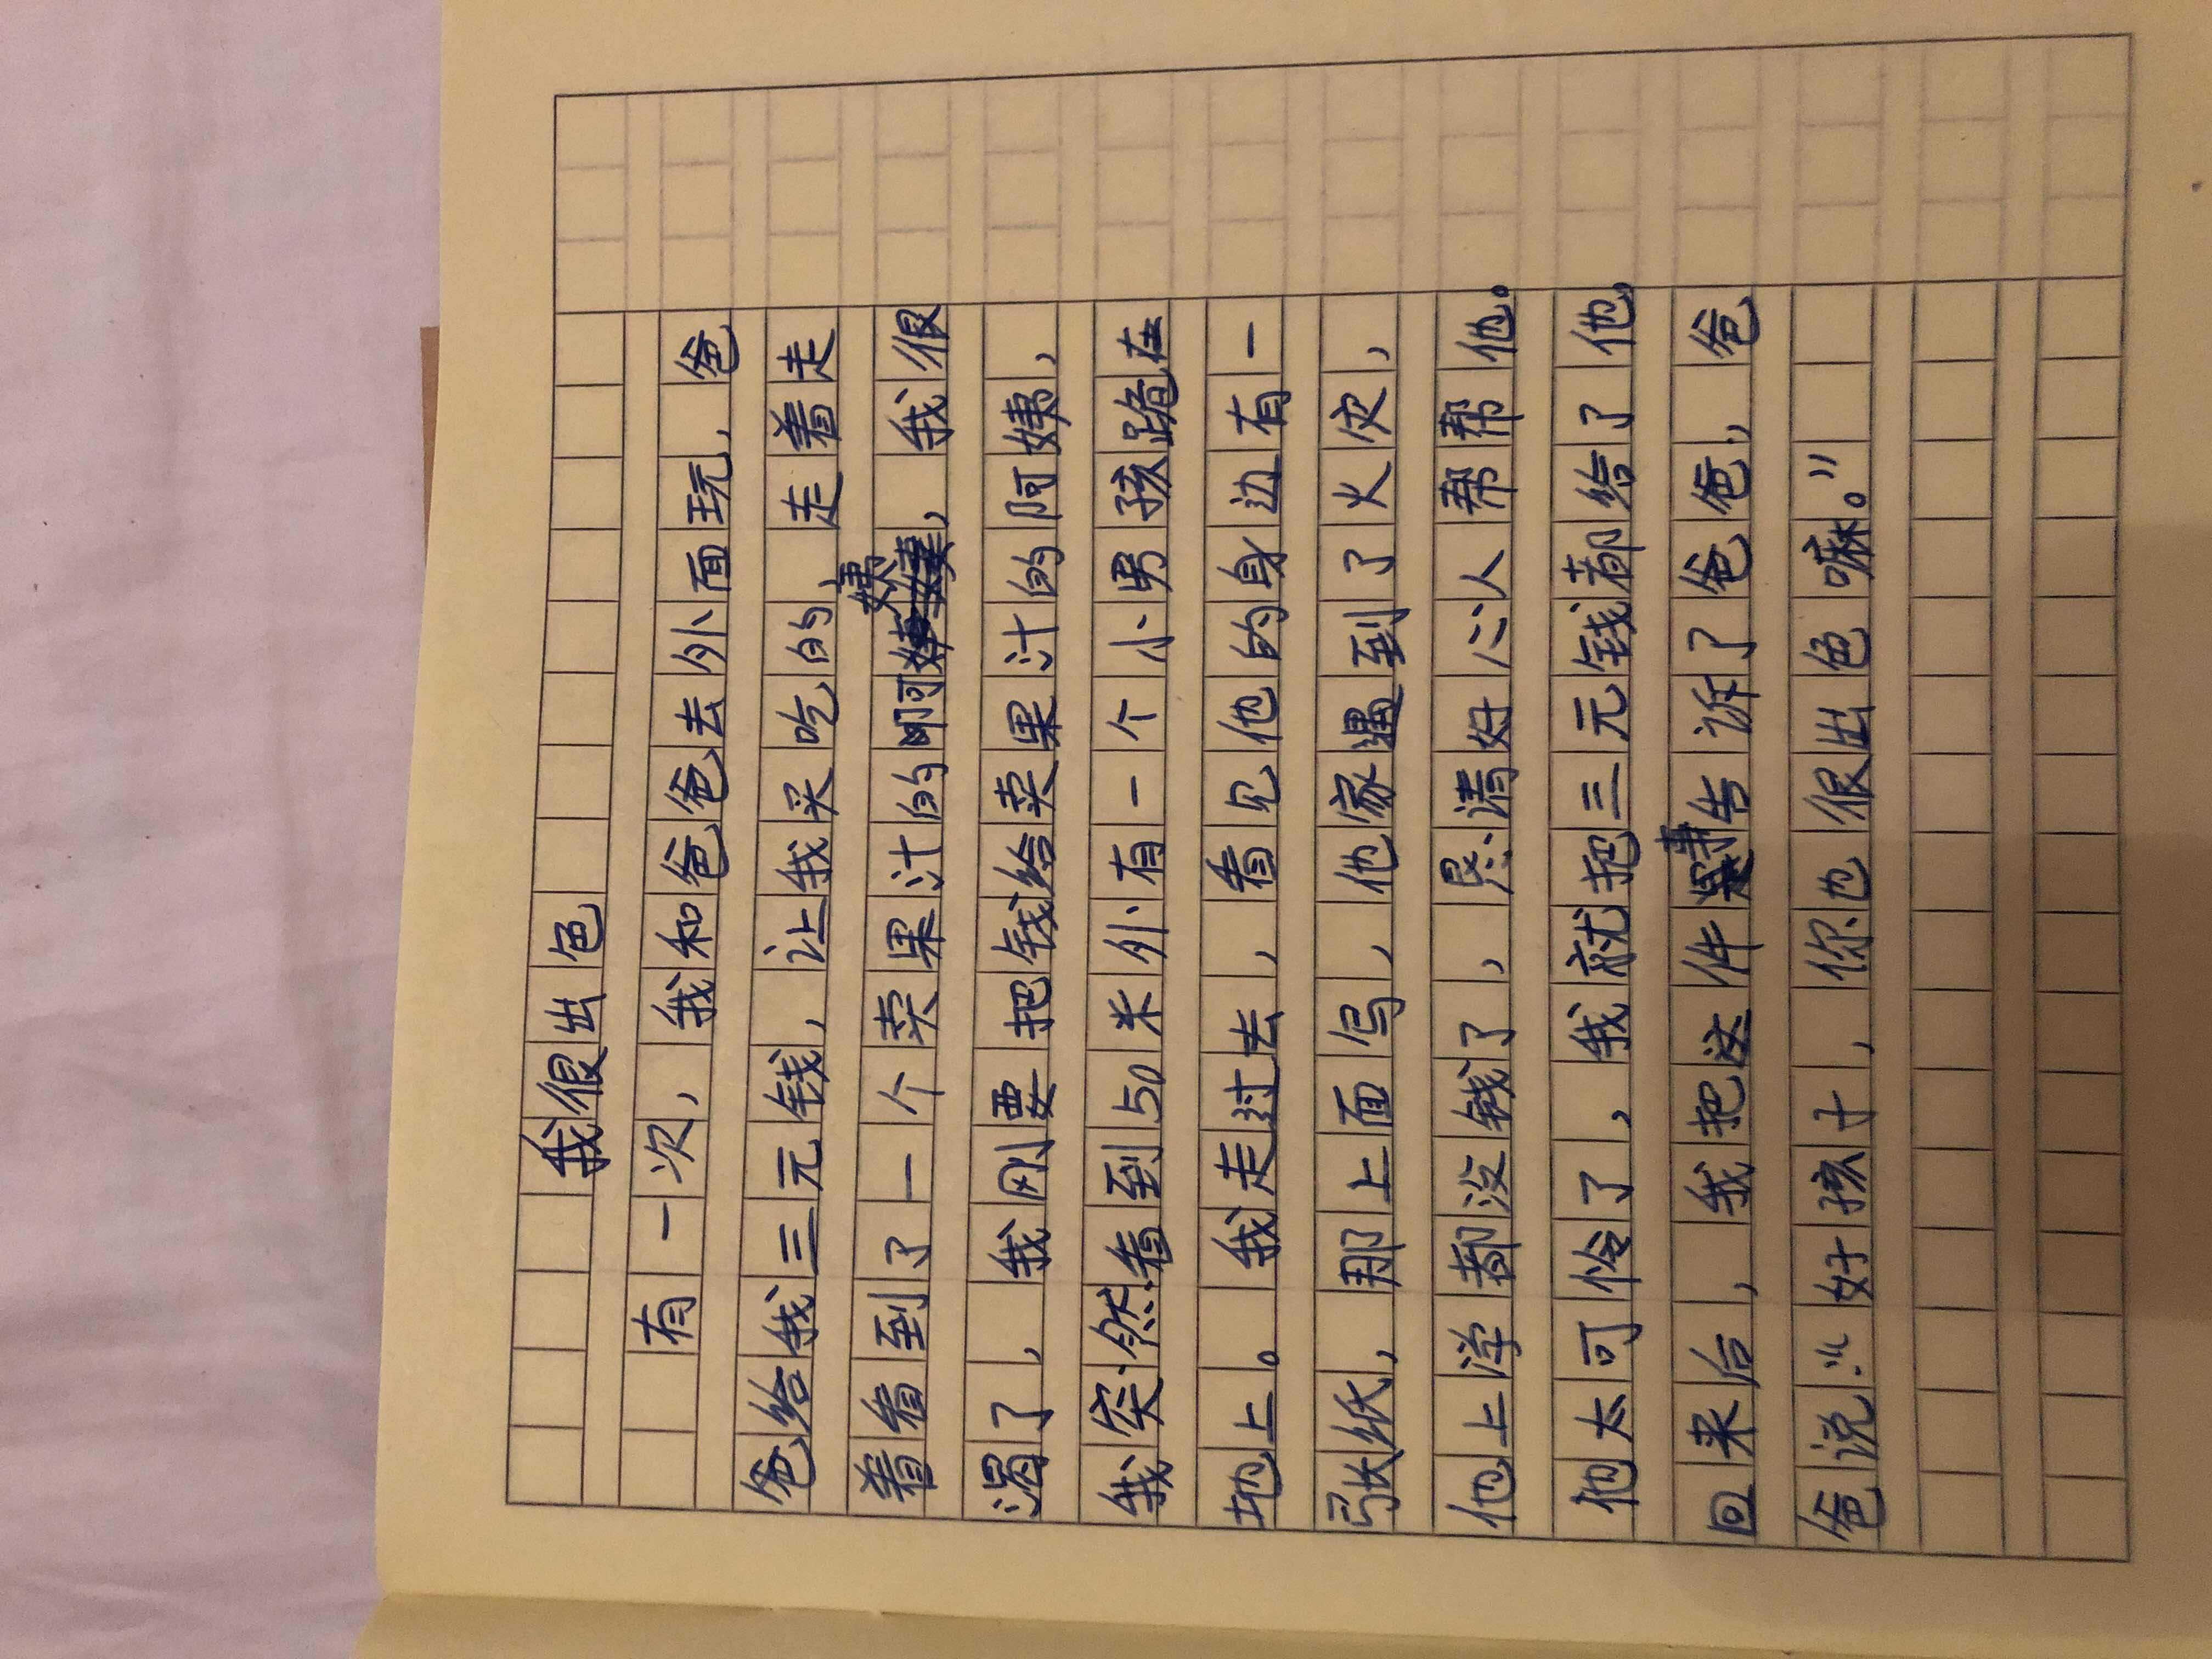 我很出色
有一次，我和爸爸去外面玩，爸
爸给我三元钱，让我买吃的，走着走
着看到了一个卖果汁的阿姨，我很
渴了，我刚要把钱给卖果汁的阿姨，
我突然看到50米外有一个小男孩跪在
地上。我走过去，看见他的身边有一
张纸，那上面写，他家遇到了火灾，
他上学都没钱了，恳请好心人帮帮他。
他太可怜了，我就把三元钱都给了他，
回来后，我把这件事告诉了爸爸，爸
爸说：“好孩子，你也很出色嘛。”